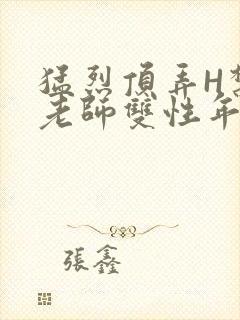 猛烈頂弄H
老師雙性年
張鑫